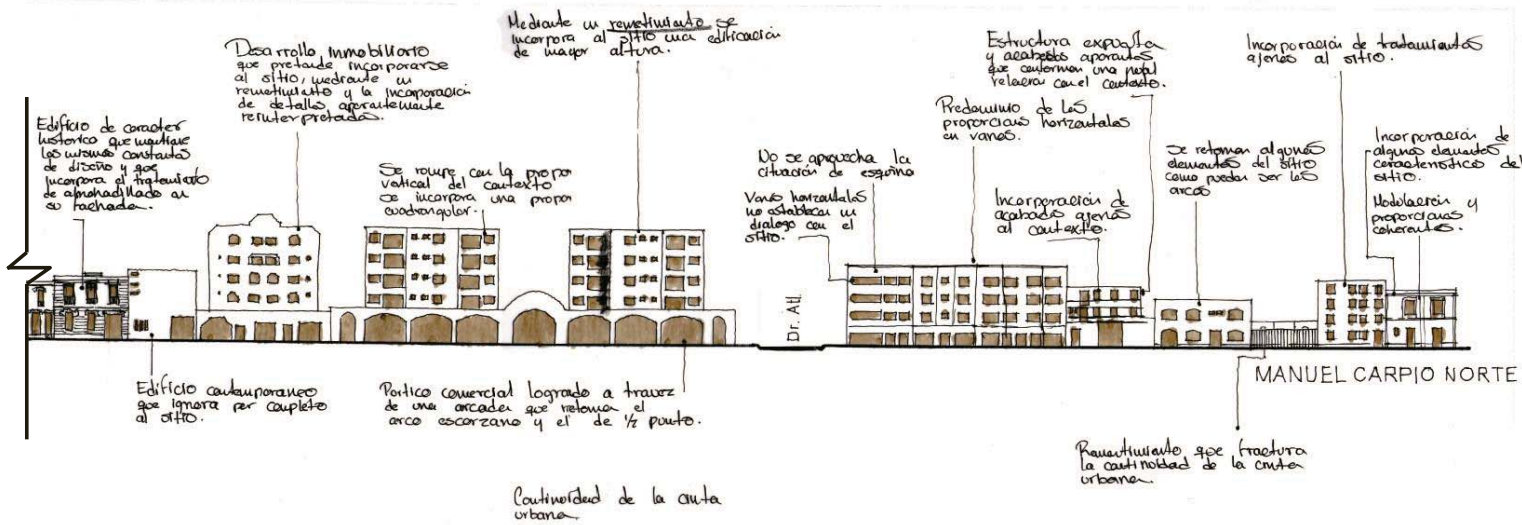 Edificio de caracter
historico que mantiene
los mismos constantes
de diseño y que
incorpora el tratamiento
de almohadillado en
su fachada.
Desarrollo inmobiliario
que pretende incorporarse
al sitio, mediante un
remetimiento y la incorporación
de detalles aparentemente
reinterpretados.
Mediante un remetimiento se
incorpora al sitio una edificación
de mayor altura.
Se rompe con la propor
vertical del contexto
se incorpora una propor
cuadrangular.
No se aprovecha la
cituación de esquina
Vanos horizontales
no establecen un
dialogo con el
sitio.
Predominio de las
proporciones horizontales
en vanos.
Estructura expuesta
y acabados aparentes
que conforman una
relación con el contexto.
Incorporación de
acabados ajenos
al contexto.
Se retoman algunos
elementos del sitio
como pueden ser los
arcos
Incorporación de tratamientos
ajenos al sitio.
Incorporación de
algunos elementos
característico del
sitio.
Modulación y
proporciones
coherentes.
Dr. Atl.
MANUEL CARPIO NORTE
Edificio contemporaneo
que ignora por completo
al sitio.
Portico comercial logrado a travez
de una arcada que retoma el
arco escarzano y el de 1/2 punto.
Remetimiento que fractura
la continuidad de la cinta
urbana.
Continuidad de la cinta
urbana